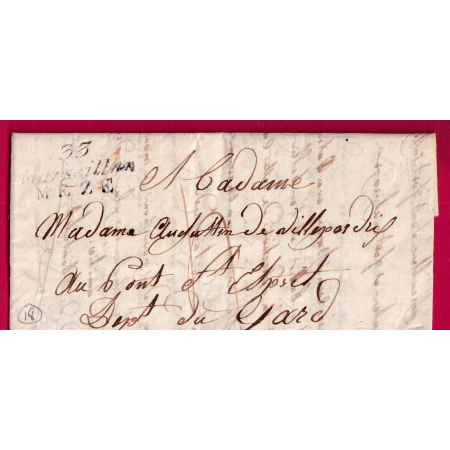 33
Marseillan
MEZE
A Madame
Madame Augustin de
au Pont St Esprit
Dept du Gard
18